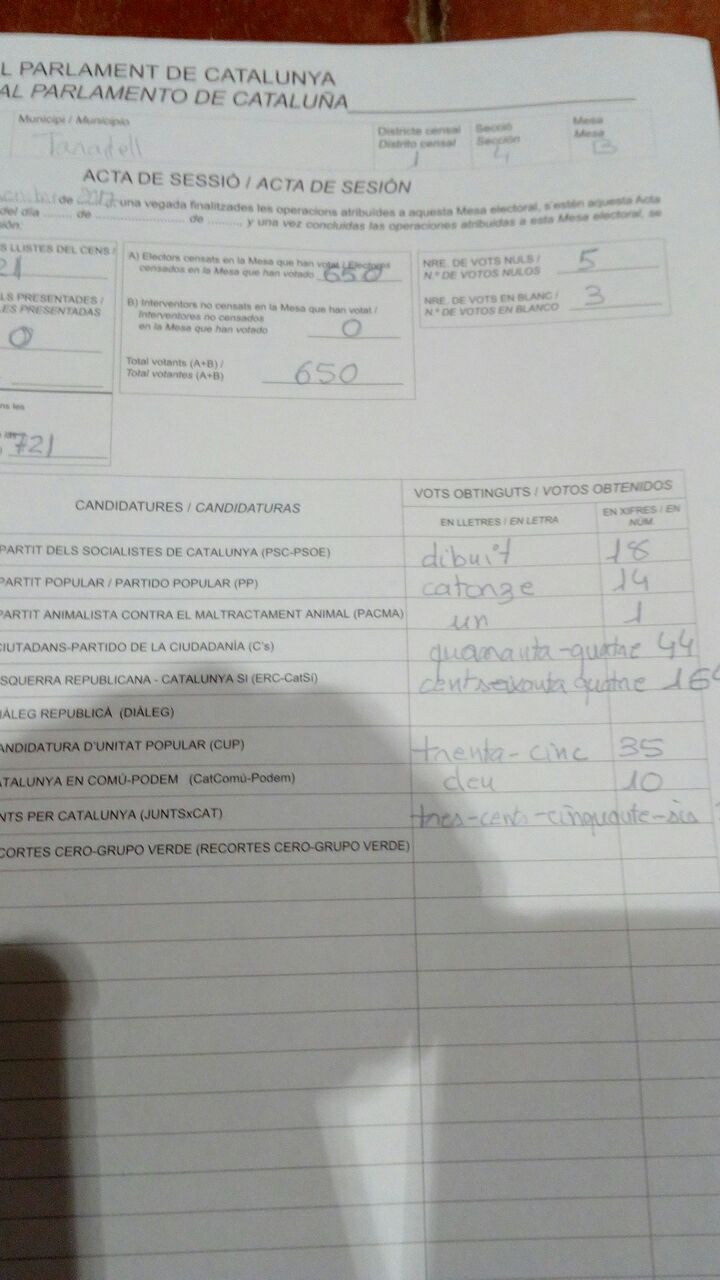 L PARLAMENT DE CATALUNYA
AL PARLAMENTO DE CATALUÑA
Municipi / Municipio
Taradell
Districte censal
Distrito censal
1
Secció
Sección
4
Mesa
Mesa
B
ACTA DE SESSIÓ / ACTA DE SESIÓN
de 2017, una vegada finalitzades les operacions atribuïdes a aquesta Mesa electoral, s'estén aquesta Acta
del día ........ de .............................. de ........., y una vez concluidas las operaciones atribuidas a esta Mesa electoral, se
sión:
S LLISTES DEL CENS /
21
LS PRESENTADES /
LES PRESENTADAS
0
ns les
721
A) Electors censats en la Mesa que han votat / Electores
censados en la Mesa que han votado 650
B) Interventors no censats en la Mesa que han votat /
Interventores no censados
en la Mesa que han votado 0
Total votants (A+B) /
Total votantes (A+B) 650
NRE. DE VOTS NULS /
N.º DE VOTOS NULOS 5
NRE. DE VOTS EN BLANC /
N.º DE VOTOS EN BLANCO 3
CANDIDATURES / CANDIDATURAS
VOTS OBTINGUTS / VOTOS OBTENIDOS
EN LLETRES / EN LETRA
EN XIFRES / EN
NÚM.
PARTIT DELS SOCIALISTES DE CATALUNYA (PSC-PSOE) dibuit 18
PARTIT POPULAR / PARTIDO POPULAR (PP) catorze 14
PARTIT ANIMALISTA CONTRA EL MALTRACTAMENT ANIMAL (PACMA) un 1
CIUTADANS-PARTIDO DE LA CIUDADANÍA (C's) quaranta-quatre 44
SQUERRA REPUBLICANA - CATALUNYA SÍ (ERC-CatSí) centseixanta quatre 164
IÀLEG REPUBLICÀ (DIÀLEG)
ANDIDATURA D'UNITAT POPULAR (CUP) trenta-cinc 35
ATALUNYA EN COMÚ-PODEM (CatComú-Podem) deu 10
NTS PER CATALUNYA (JUNTSxCAT) tres-cents-cinquante-sis
CORTES CERO-GRUPO VERDE (RECORTES CERO-GRUPO VERDE)